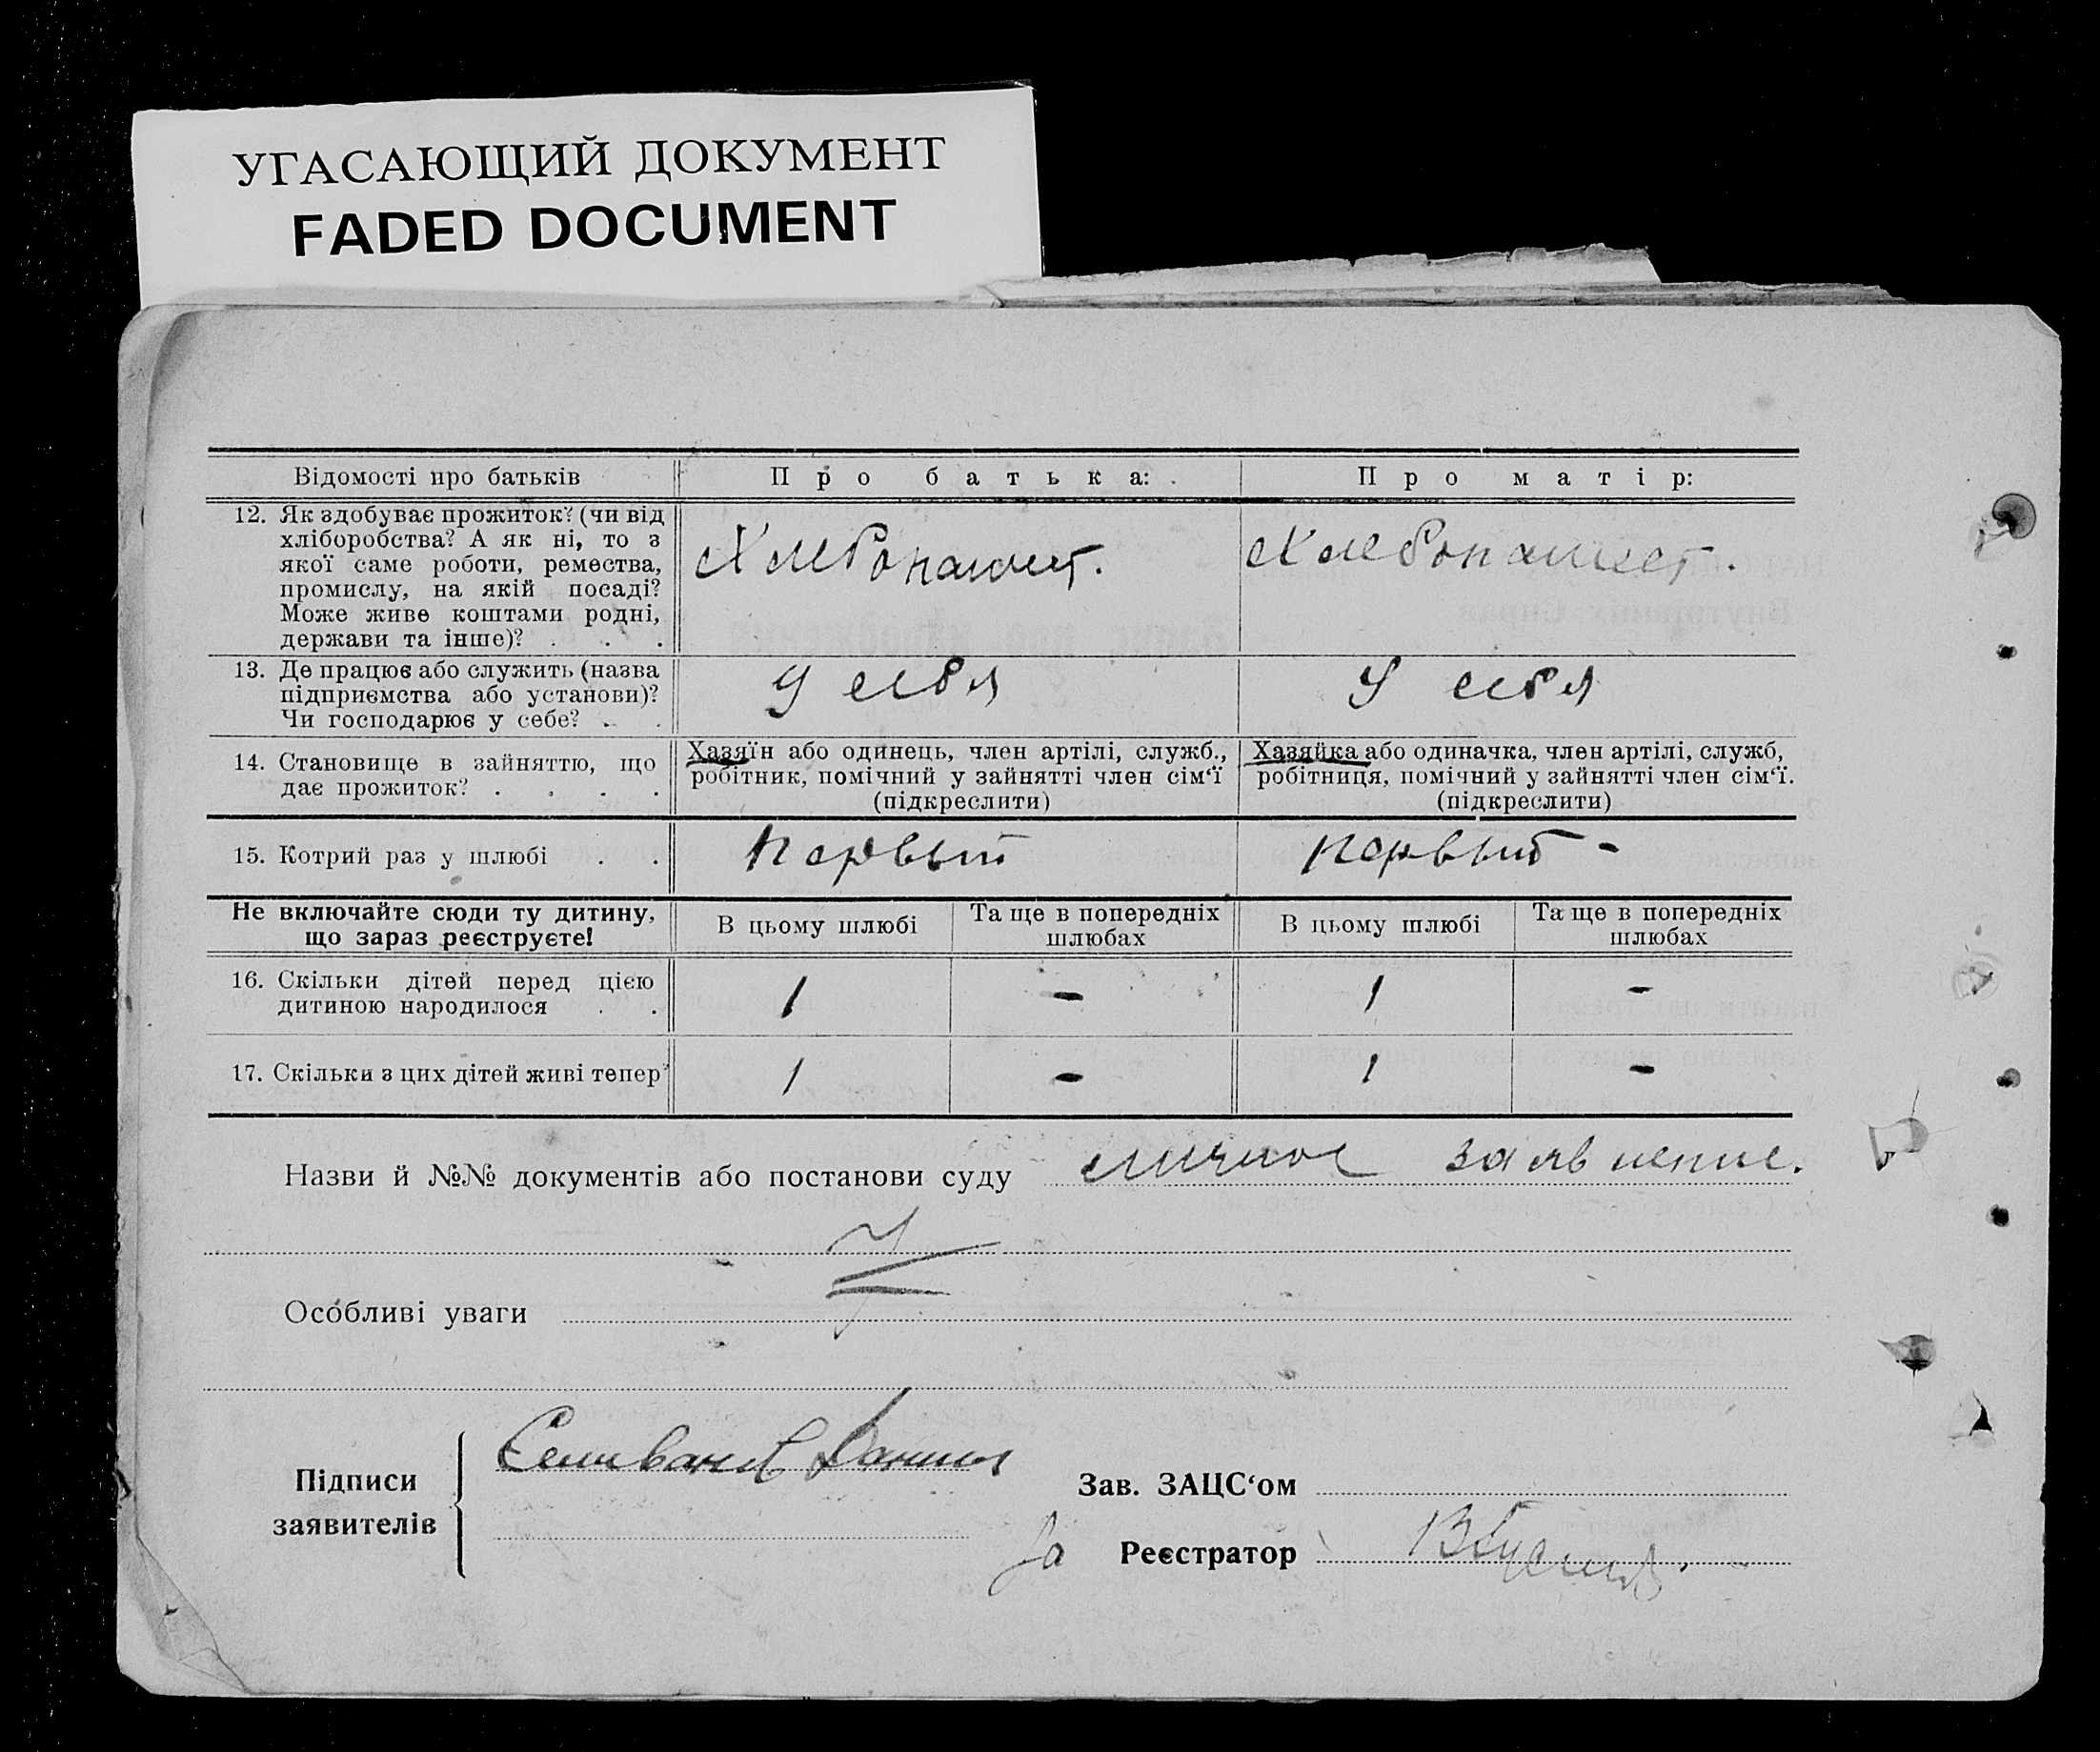 УГАСАЮЩИЙ ДОКУМЕНТ
FADED DOCUMENT
Відомості про батьків
Про батька:
Про матір:
12. Як здобуває прожиток? (чи від
хліборобства? А як ні, то з
якої саме роботи, ремества,
промислу, на якій посаді?
Може живе коштами родні,
держави та інше)? . . .
Хлебопашест.
Хлебопашест.
13. Де працює або служить (назва
підприємства або установи)?
Чи господарює у себе? . .
У себя
У себя
14. Становище в зайняттю, що
дає прожиток? . . . .
Хазяїн або одинець, член артілі, служб.,
робітник, помічний у зайнятті член сім‘ї
(підкреслити)
Хазяйка або одиначка, член артілі, служб,
робітниця, помічний у зайнятті член сім‘ї.
(підкреслити)
15. Котрий раз у шлюбі . .
первый
первый -
Не включайте сюди ту дитину,
що зараз реєструєте!
В цьому шлюбі
Та ще в попередніх
шлюбах
В цьому шлюбі
Та ще в попередніх
шлюбах
16. Скільки дітей перед цією
дитиною народилося . .
1
-
1
-
17. Скільки з цих дітей живі тепер?
1
-
1
-
Назви й №№ документів або постанови суду личное заявление.
Особливі уваги
Підписи
заявителів
Селиванов Данил
Зав. ЗАЦС‘ом
За Реєстратор